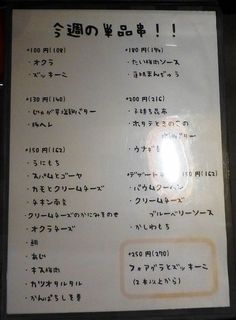 今週の単品串！！
*100円(108)
・オクラ
・ズッキーニ
*130円(140)
・じゃが芋塩麹バター
・梅ヘレ
*150円(162)
・うにもち
・スパムとゴーヤ
・カモとクリームチーズ
・チキン南蛮
・クリームチーズのかにみそのせ
・オクラチーズ
・鯛
・あじ
・キス梅肉
・カツオタルタル
・かんぱちしそ巻
*180円(194)
・たい梅肉ソース
・蓮根まんじゅう
*200円(216)
・子持ち昆布
・ホタテときのこの
バター
・ウナギ
*デザート 150円(162)
・バウムクーヘン
・クリームチーズ
ブルーベリーソース
・かしわもち
*250円(270)
フォアグラとズッキーニ
(2本以上から)